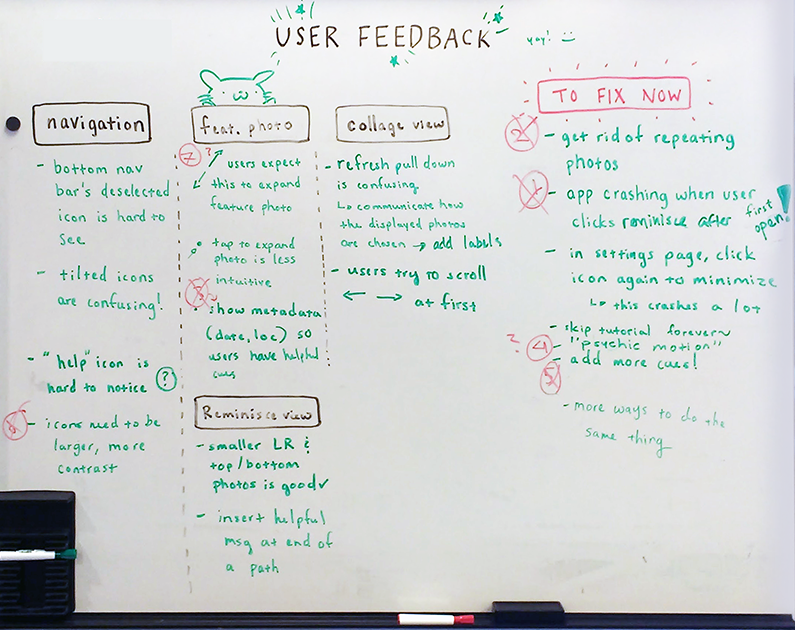 USER FEEDBACK
yay!
navigation
- bottom nav
bar's deselected
icon is hard to
see
- tilted icons
are confusing!
- "help" icon is
hard to notice ?
6
- icons need to be
larger, more
contrast
feat. photo
7 ?
users expect
this to expand
feature photo
tap to expand
photo is less
intuitive
3
show metadata
(date, loc) so
users have helpful
cues
Reminisce view
- smaller LR &
top/bottom
photos is good✓
- insert helpful
msg at end of
a path
collage view
- refresh pull down
is confusing
↳ communicate how
the displayed photos
are chosen → add labels
- users try to scroll
← → at first
TO FIX NOW
2 - get rid of repeating
photos
1 - app crashing when user
clicks reminisce after first
open!
- in settings page, click
icon again to minimize
↳ this crashes a lot
- skip tutorial forever~
? 4 - "psychic motion"
5 - add more cues!
- more ways to do the
same thing